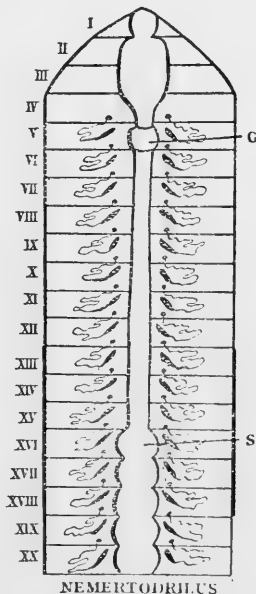 I
II
III
IV
V G
VI
VII
VIII
IX
X
XI
XII
XIII
XIV
XV
XVI S
XVII
XVIII
XIX
XX
NEMERTODRILUS